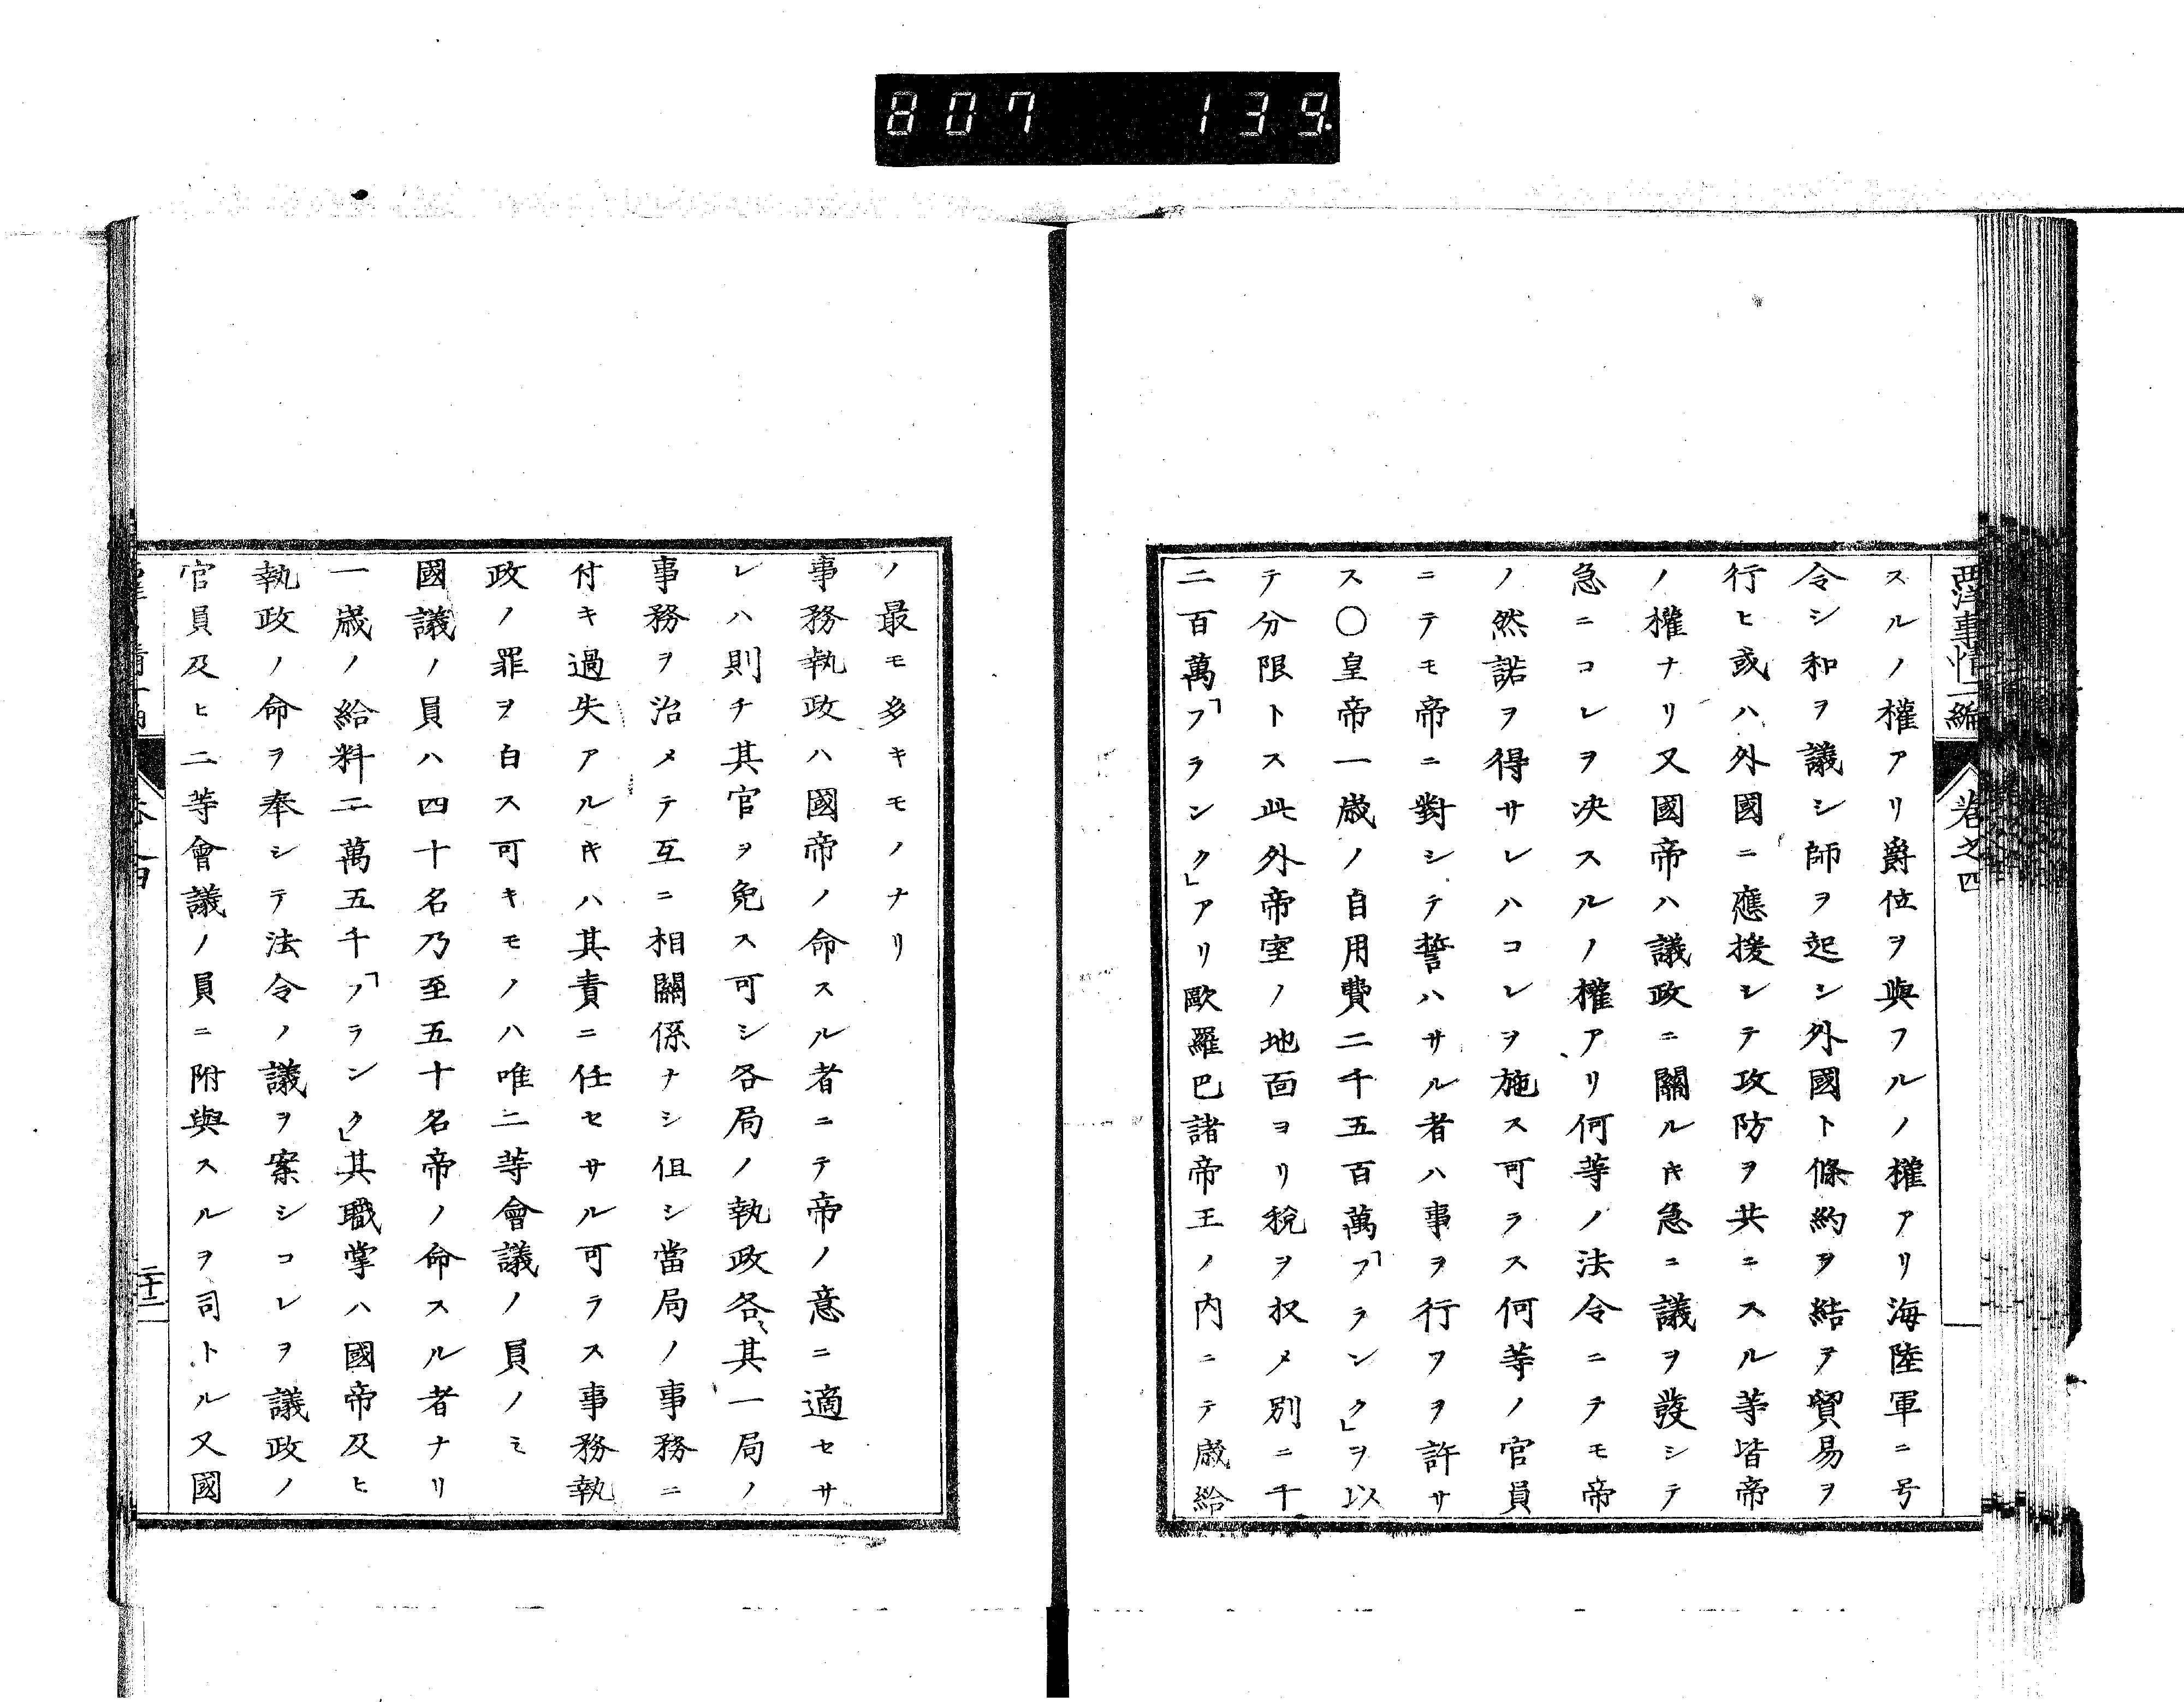 807 139.
西洋事情二編
卷之四
スルノ權アリ爵位ヲ與フルノ權アリ海陸軍ニ号
令シ和ヲ議シ師ヲ起シ外國ト條約ヲ結ヒ貿易ヲ
行ヒ或ハ外國ニ應援シテ攻防ヲ共ニスル等皆帝
ノ權ナリ又國帝ハ議政ニ關ル𪜈急ニ議ヲ發シテ
急ニコレヲ决スルノ權アリ何等ノ法令ニテモ帝
ノ然諾ヲ得サレハコレヲ施ス可ラス何等ノ官員
ニテモ帝ニ對シテ誓ハサル者ハ事ヲ行フヲ許サ
ス○皇帝一歳ノ自用費二千五百萬「フランク」ヲ以
テ分限トス此外帝室ノ地面ヨリ税ヲ收メ別ニ千
二百萬「フランク」アリ歐羅巴諸帝王ノ内ニテ歳給
ノ最モ多キモノナリ
事務執政ハ國帝ノ命スル者ニテ帝ノ意ニ適セサ
レハ則チ其官ヲ免ス可シ各局ノ執政各〻其一局ノ
事務ヲ治メテ互ニ相關係ナシ但シ當局ノ事務ニ
付キ過失アルキハ其責ニ任セサル可ラス事務執
政ノ罪ヲ白ス可キモノハ唯二等會議ノ員ノミ
國議ノ員ハ四十名乃至五十名帝ノ命スル者ナリ
一歳ノ給料二萬五千「フランク」其職掌ハ國帝及ヒ
執政ノ命ヲ奉シテ法令ノ議ヲ案シコレヲ議政ノ
官員及ヒ二等會議ノ員ニ附與スルヲ司トル又國
二十二